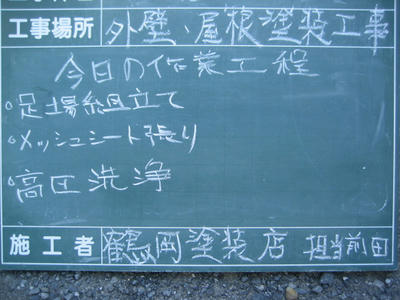 工事場所 外壁、屋根塗装工事
今日の作業工程
○足場組立て
○メッシュシート張り
○高圧洗浄
施工者 鶴岡塗装店 担当前田